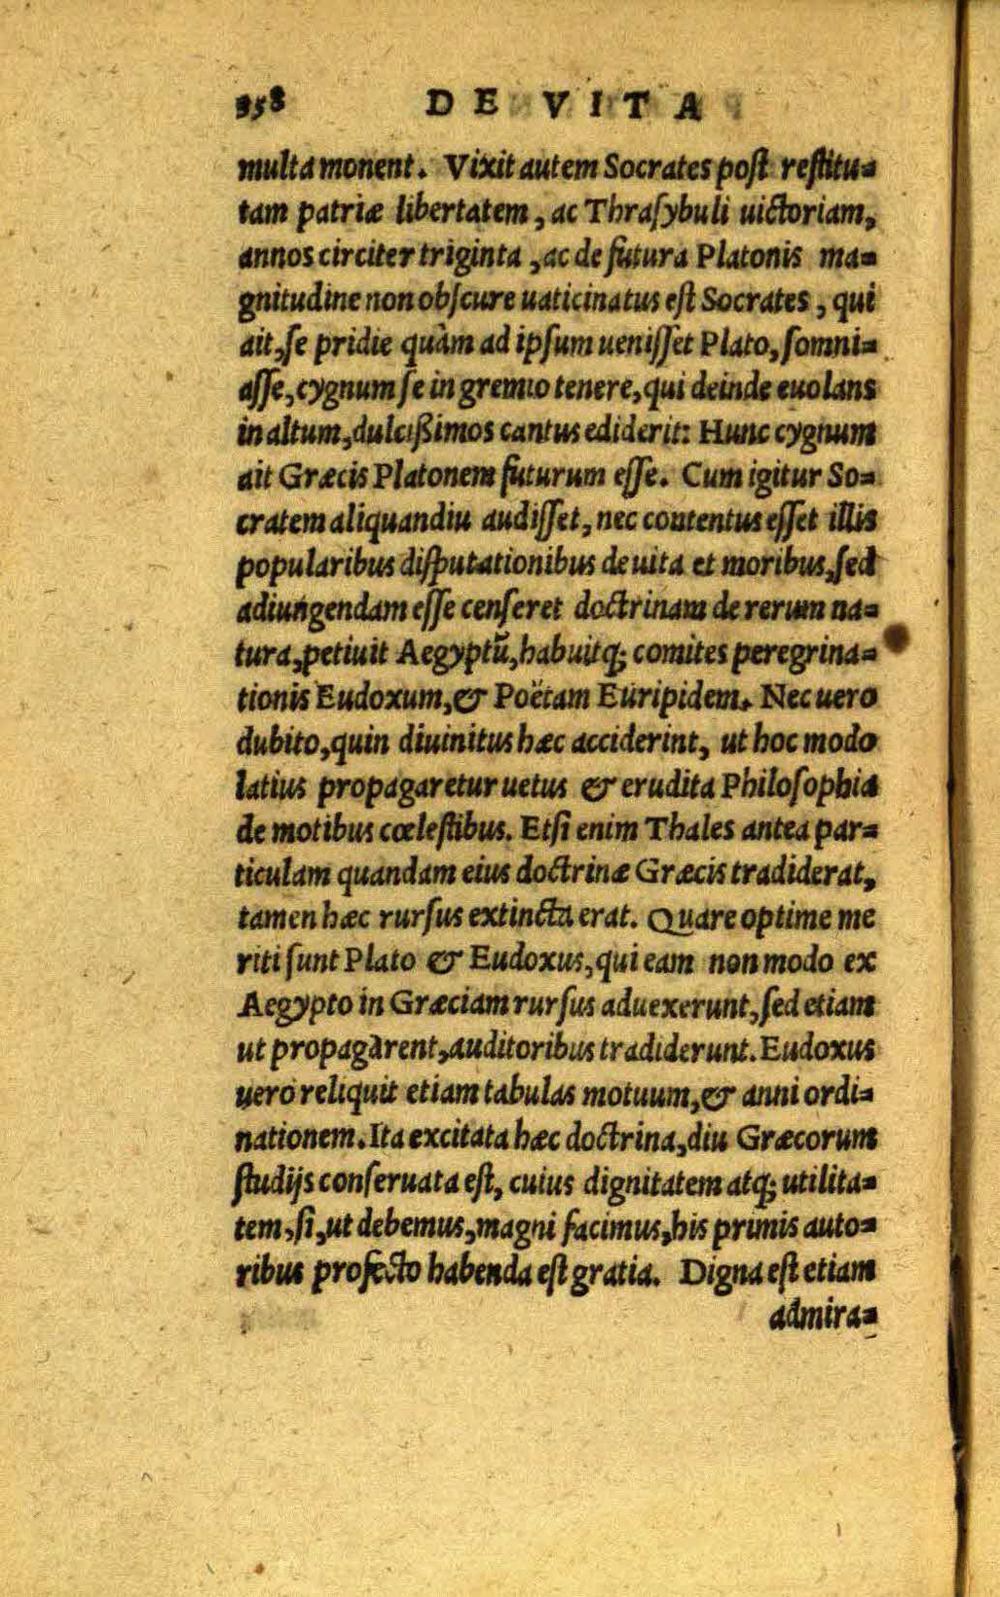 358 DE VITA
multa monent. Vixit autem Socrates poſt reſtitu⸗
tam patriæ libertatem, ac Thraſybuli uictoriam,
annos circiter triginta, ac de futura Platonis ma⸗
gnitudine non obſcure uaticinatus eſt Socrates, qui
ait, ſe pridie quàm ad ipſum ueniſſet Plato, ſomni⸗
aſſe, cygnum ſe in gremio tenere, qui deinde euolans
in altum, dulcißimos cantus ediderit: Hunc cygnum
ait Græcis Platonem futurum eſſe. Cum igitur So⸗
cratem aliquandiu audiſſet, nec contentus eſſet illis
popularibus diſputationibus de uita et moribus, ſed
adiungendam eſſe cenſeret doctrinam de rerum na⸗
tura, petiuit Aegyptũ, habuitq; comites peregrina⸗
tionis Eudoxum, & Poëtam Euripidem. Nec uero
dubito, quin diuinitus hæc acciderint, ut hoc modo
latius propagaretur uetus & erudita Philoſophia
de motibus cœleſtibus. Etſi enim Thales antea par⸗
ticulam quandam eius doctrinæ Græcis tradiderat,
tamen hæc rurſus extincta erat. Quare optime me
riti ſunt Plato & Eudoxus, qui eam non modo ex
Aegypto in Græciam rurſus aduexerunt, ſed etiam
ut propagàrent, auditoribus tradiderunt. Eudoxus
uero reliquit etiam tabulas motuum, & anni ordi⸗
nationem. Ita excitata hæc doctrina, diu Græcorum
ſtudijs conſeruata eſt, cuius dignitatem atq; utilita⸗
tem, ſi, ut debemus, magni facimus, his primis auto⸗
ribus profecto habenda eſt gratia. Digna eſt etiam
admira⸗